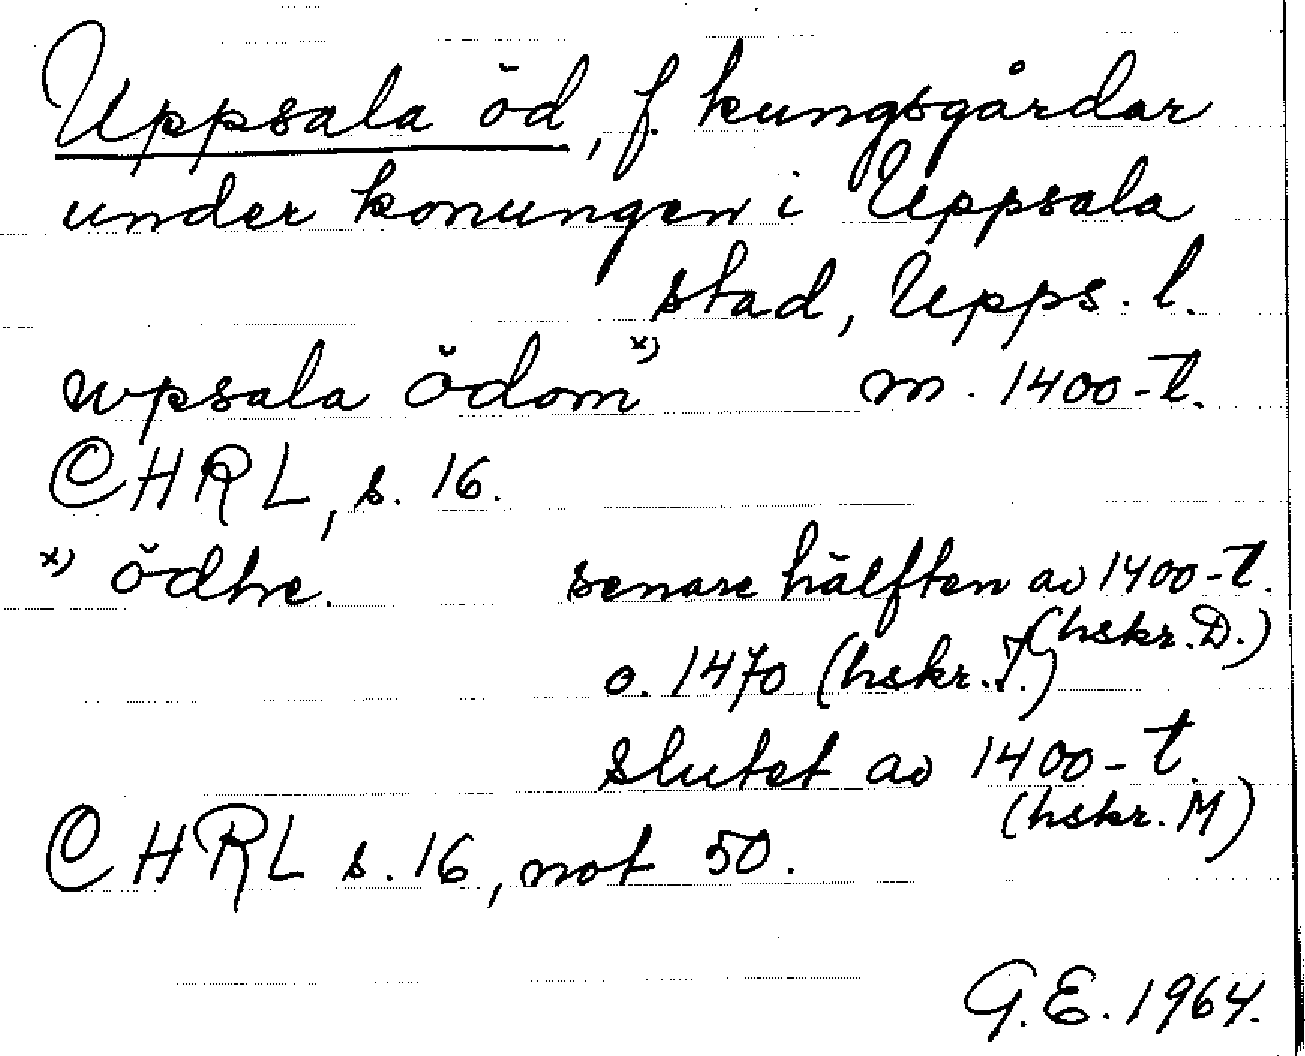 Uppsala öd, f. kungsgårdar
under konungen i Uppsala
stad, Upps. l.
wpsala ödom x) m. 1400-t.
CHRL, s. 16.
x) ödhe. senare hälften av 1400-t.
(hskr. D.)
o. 1470 (hskr. I.)
slutet av 1400-t.
(hskr. M)
CHRL s. 16, not 50.
G.E. 1964.